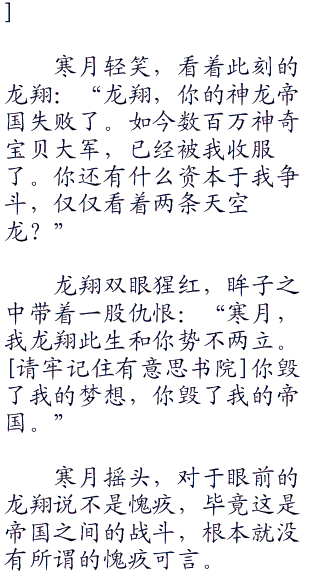 ]
寒月轻笑，看着此刻的
龙翔：“龙翔，你的神龙帝
国失败了。如今数百万神奇
宝贝大军，已经被我收服
了。你还有什么资本于我争
斗，仅仅看着两条天空
龙？”
龙翔双眼猩红，眸子之
中带着一股仇恨：“寒月，
我龙翔此生和你势不两立。
[请牢记住有意思书院]你毁
了我的梦想，你毁了我的帝
国。”
寒月摇头，对于眼前的
龙翔说不是愧疚，毕竟这是
帝国之间的战斗，根本就没
有所谓的愧疚可言。